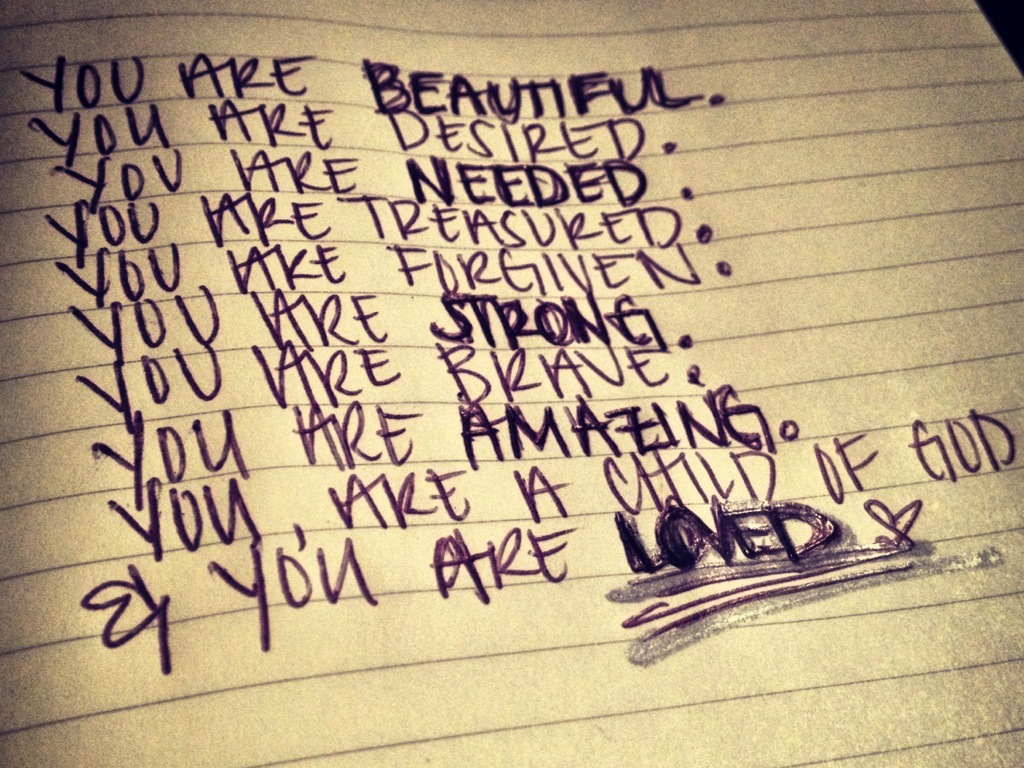 YOU ARE BEAUTIFUL.
YOU ARE DESIRED.
YOU ARE NEEDED.
YOU ARE TREASURED.
YOU ARE FORGIVEN.
YOU ARE STRONG.
YOU ARE BRAVE.
YOU ARE AMAZING.
YOU ARE A CHILD OF GOD
& YOU ARE LOVED ♡